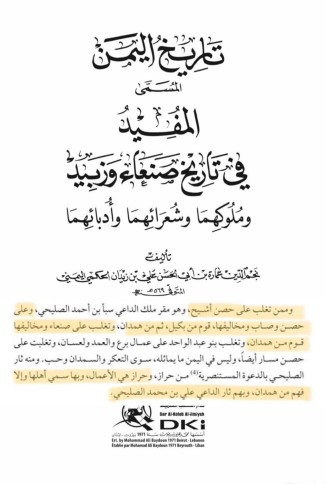 تاريخ اليمن
المسمى
المفيد
في تاريخ صنعاء وزبيد
وملوكهما وشعرائهما وأدبائهما
تأليف
نجم الدين عمارة بن أبي الحسن علي بن زيدان الحكمي اليمني
المتوفى ٥٦٩هـ
وممن تغلب على حصن أشيح، وهو مقر ملك الداعي سبأ بن أحمد الصليحي، وعلى
حصن وصاب ومخاليفها، قوم من بكيل، ثم من همدان، وتغلب على صنعاء ومخاليفها
قوم من همدان، وتغلب بنو عبد الواحد على عمال برع والعمد ولعسان، وتغلبت على
حصن مسار أيضاً، وليس في اليمن ما يماثله، سوى التعكر والسمدان وحب. ومنه ثار
الصليحي بالدعوة المستنصرية(4) من حراز، وحراز هي الأعمال، وبها سمي أهلها وإلا
فهم من همدان، وبهم ثار الداعي علي بن محمد الصليحي.
Dar Al-Kotob Al-ilmiyah
DKi
Est. by Mohammad Ali Baydoun 1971 Beirut - Lebanon
Établie par Mohamad Ali Baydoun 1971 Beyrouth - Liban